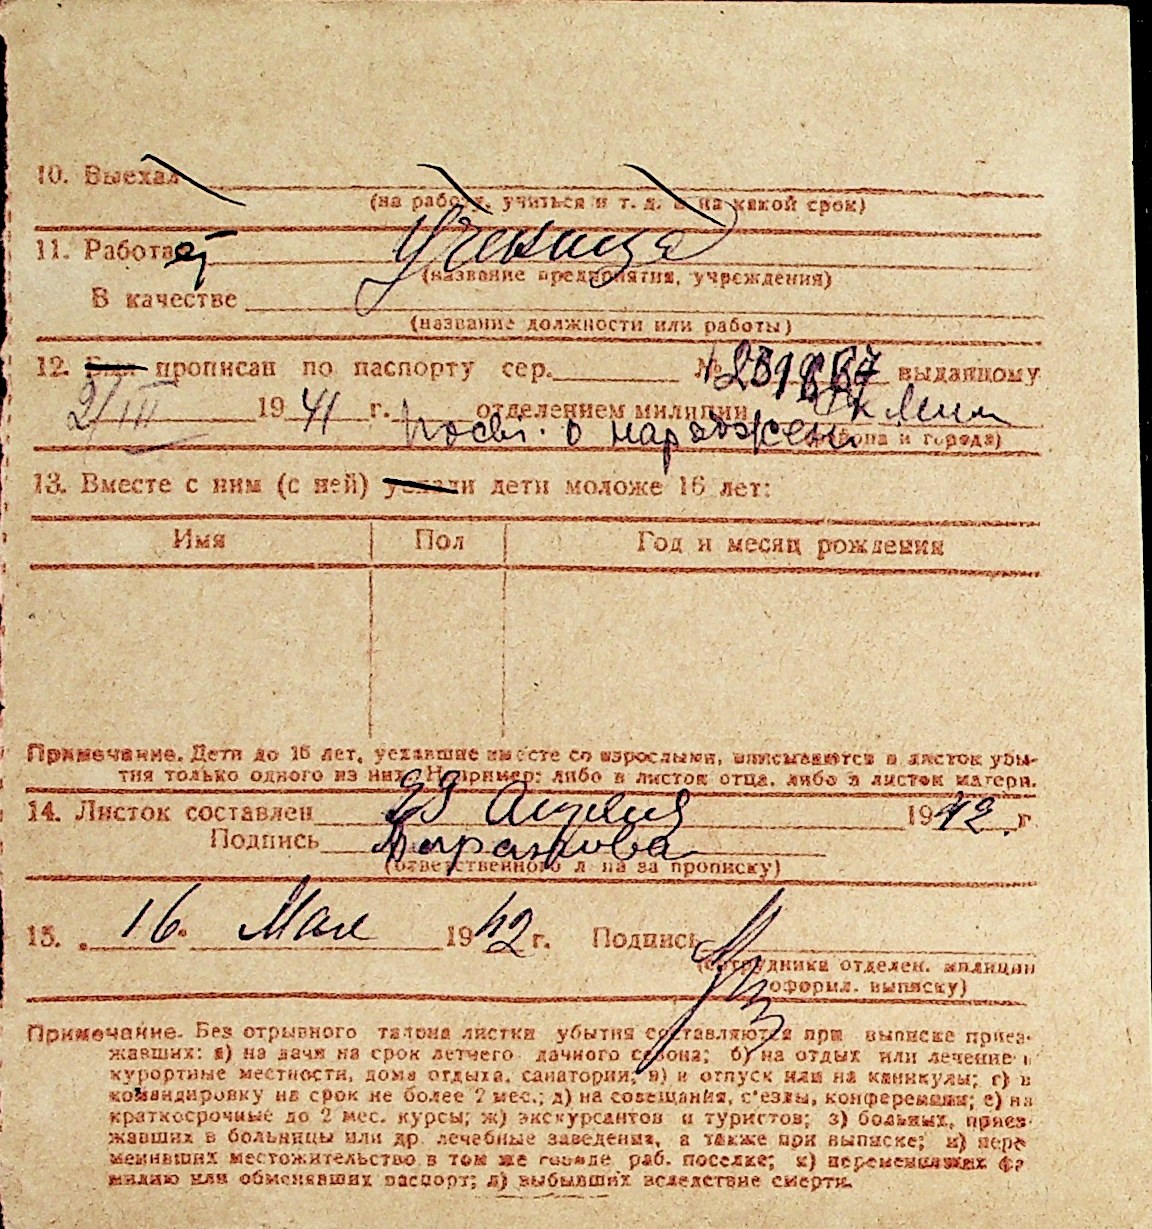 10. Выехал
(на работу, учиться и т. д. и на какой срок)
11. Работает Ученица
(название предприятия, учреждения)
В качестве
(название должности или работы)
12. Был прописан по паспорту сер. № выданному
21/III 1941 г. отделением милиции
о нарождени (района и города)
13. Вместе с ним (с ней) уехали дети моложе 16 лет:
Имя Пол Год и месяц рождения
Примечание. Дети до 16 лет, уехавшие вместе со взрослыми, вписываются в листок убы-
тия только одного из них. Например: либо в листок отца, либо в листок матери.
14. Листок составлен 29 Апреля 1942 г.
Подпись
(ответственного л-ца за прописку)
15. 16 Мая 1942 г. Подпись
(сотрудника отделен. милиции
оформл. выписку)
Примечание. Без отрывного талона листки убытия составляются при выписке приез-
жавших: а) на дачи на срок летнего дачного сезона; б) на отдых или лечение в
курортные местности, дома отдыха, санатории; в) в отпуск или на каникулы; г) в
командировку на срок не более 2 мес.; д) на совещания, с'езды, конференции; е) на
краткосрочные до 2 мес. курсы; ж) экскурсантов и туристов; з) больных, приез-
жавших в больницы или др. лечебные заведения, а также при выписке; и) пере
менивших местожительство в том же городе, раб. поселке; к) переменивших фа
милию или обменявших паспорт; л) выбывших вследствие смерти.